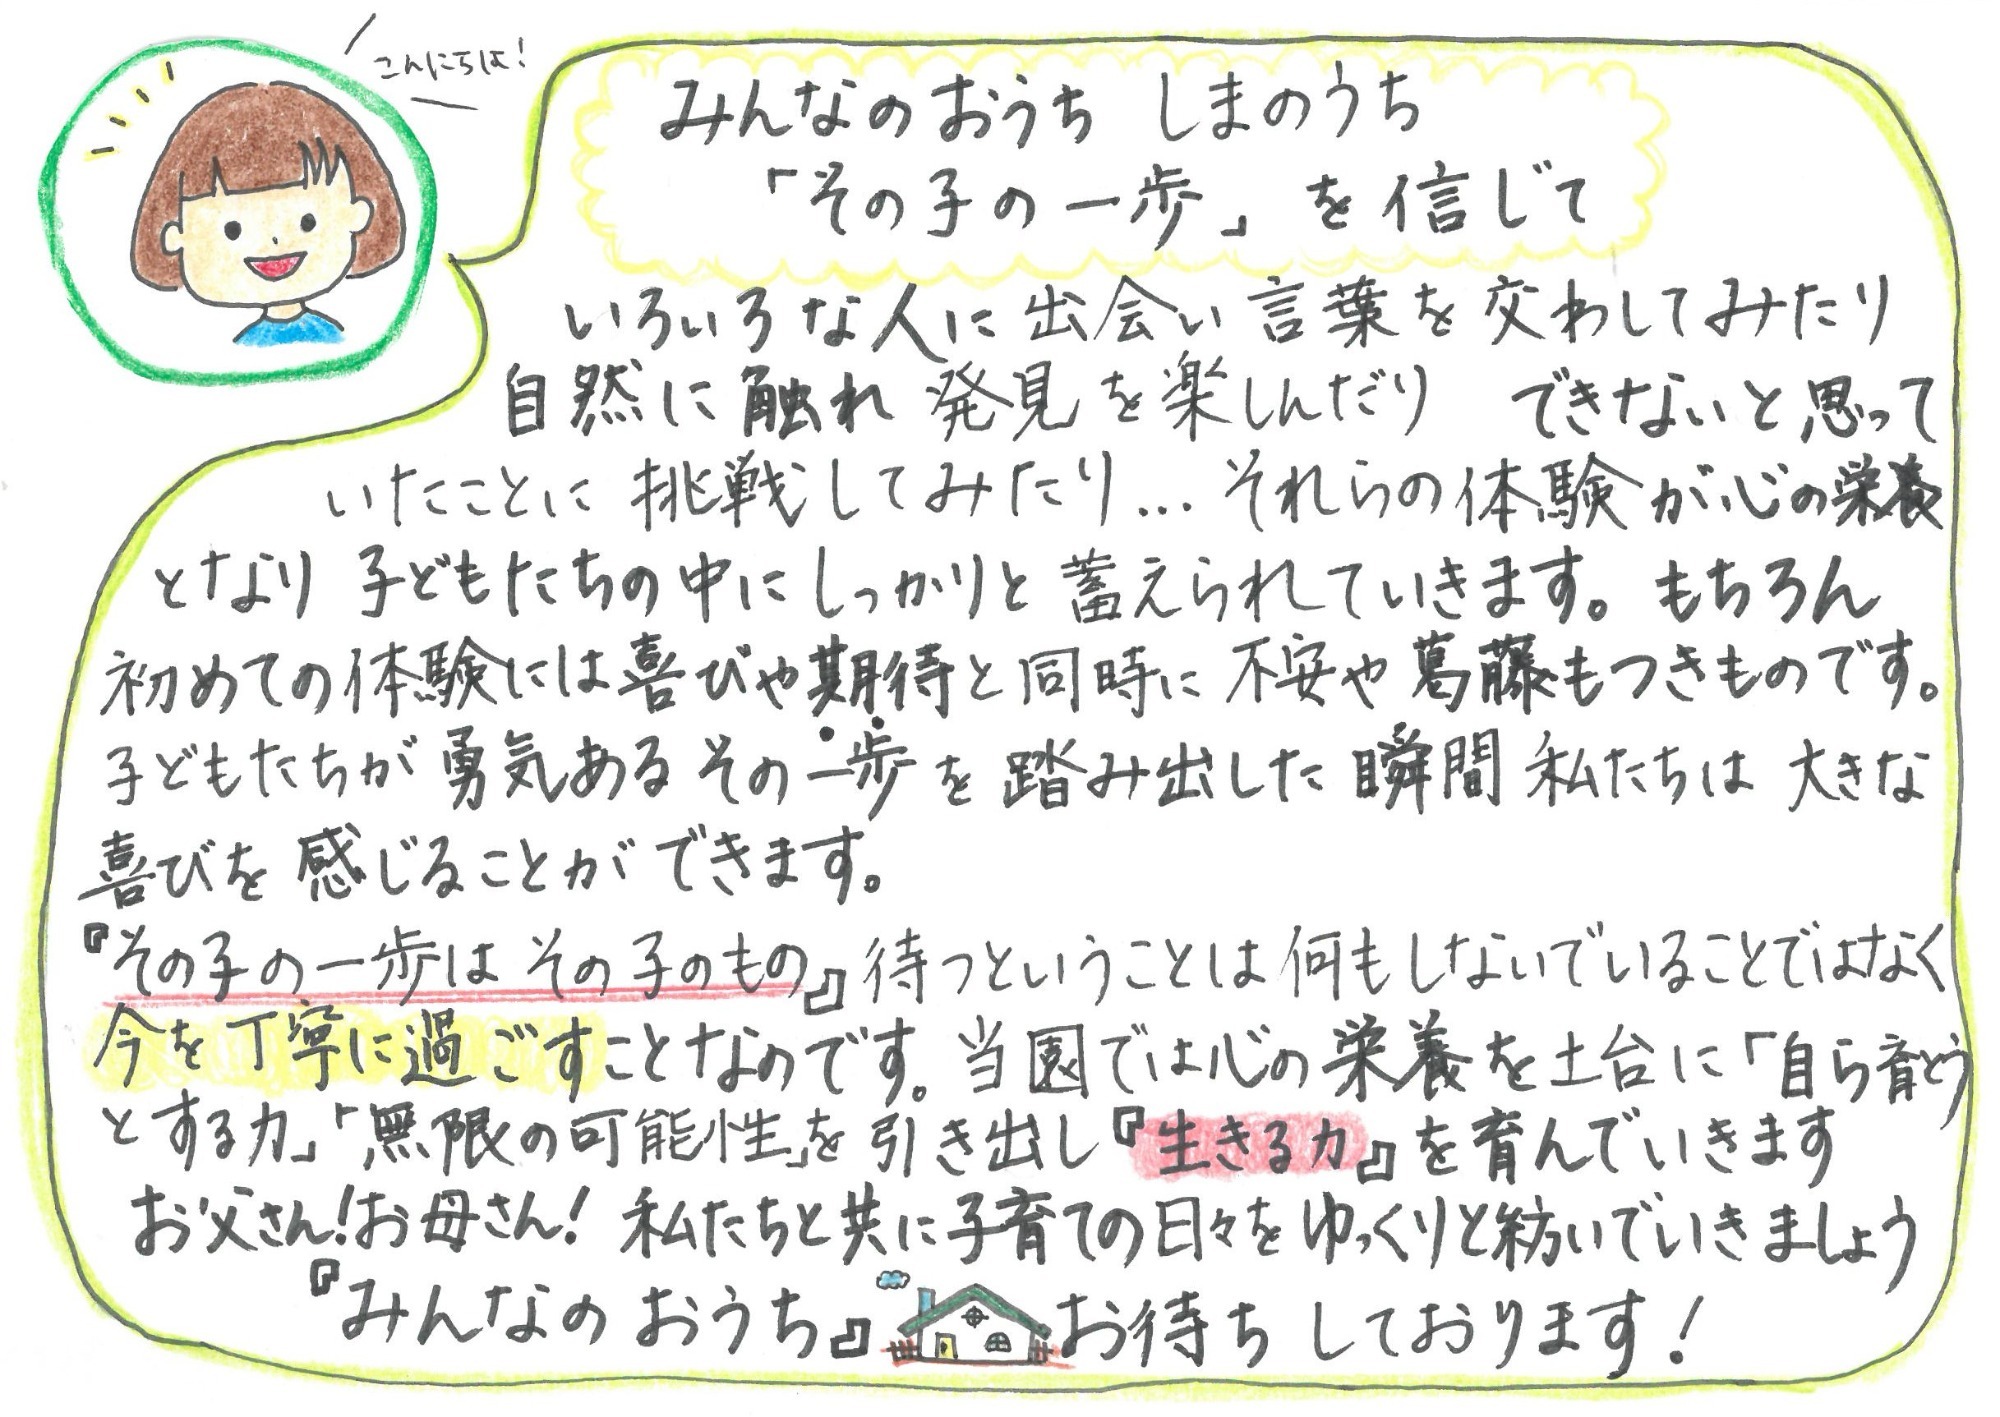 こんにちは!
みんなのおうち しまのうち
「その子の一歩」を信じて
いろいろな人に出会い言葉を交わしてみたり
自然に触れ発見を楽しんだり できないと思って
いたことに挑戦してみたり…それらの体験が心の栄養
となり子どもたちの中にしっかりと蓄えられていきます。もちろん
初めての体験には喜びや期待と同時に不安や葛藤もつきものです。
子どもたちが勇気あるその一歩を踏み出した瞬間私たちは大きな
喜びを感じることができます。
『その子の一歩はその子のもの』待つということは何もしないでいることではなく
今を丁寧に過ごすことなのです。当園では心の栄養を土台に「自ら育とう
とする力」「無限の可能性」を引き出し『生きる力』を育んでいきます
お父さん!お母さん!私たちと共に子育ての日々をゆっくりと紡いでいきましょう
『みんなのおうち』お待ちしております!